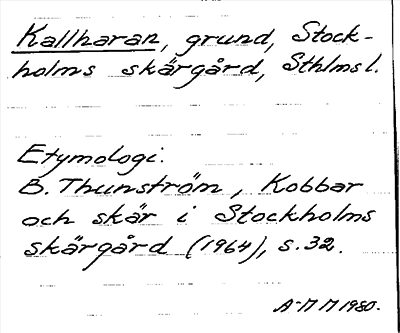 Kallharan, grund, Stock-
holms skärgård, Sthlms l.
Etymologi.
B. Thunström, Kobbar
och skär i Stockholms
skärgård (1964), s. 32.
A-M M 1980.